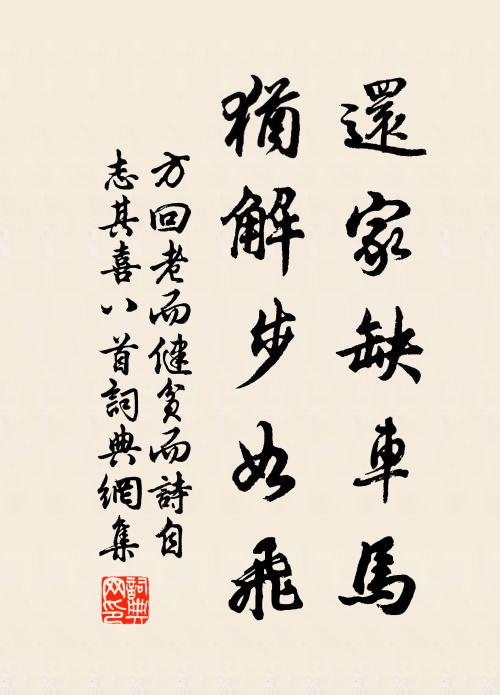 還家缺車馬
猶解步如飛
方回老而健貧而詩自
志其喜八首詞典網集
詞典網印